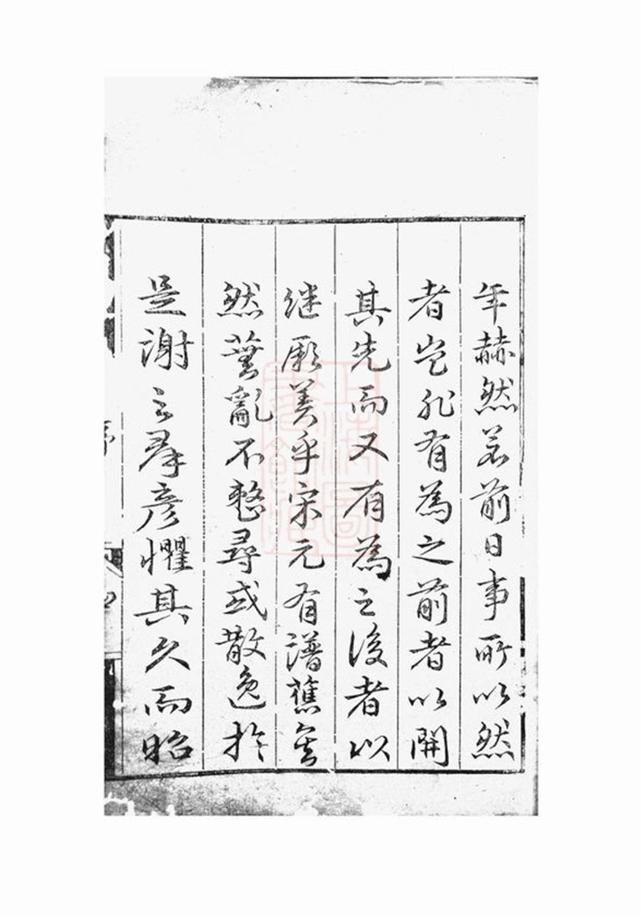 年赫然若前日事所以然
者豈非有為之前者以開
其先而又有為之後者以
继厥美乎宋元有譜舊矣
然亂不整尋或散逸於
是謝之群彦懼其久而昭